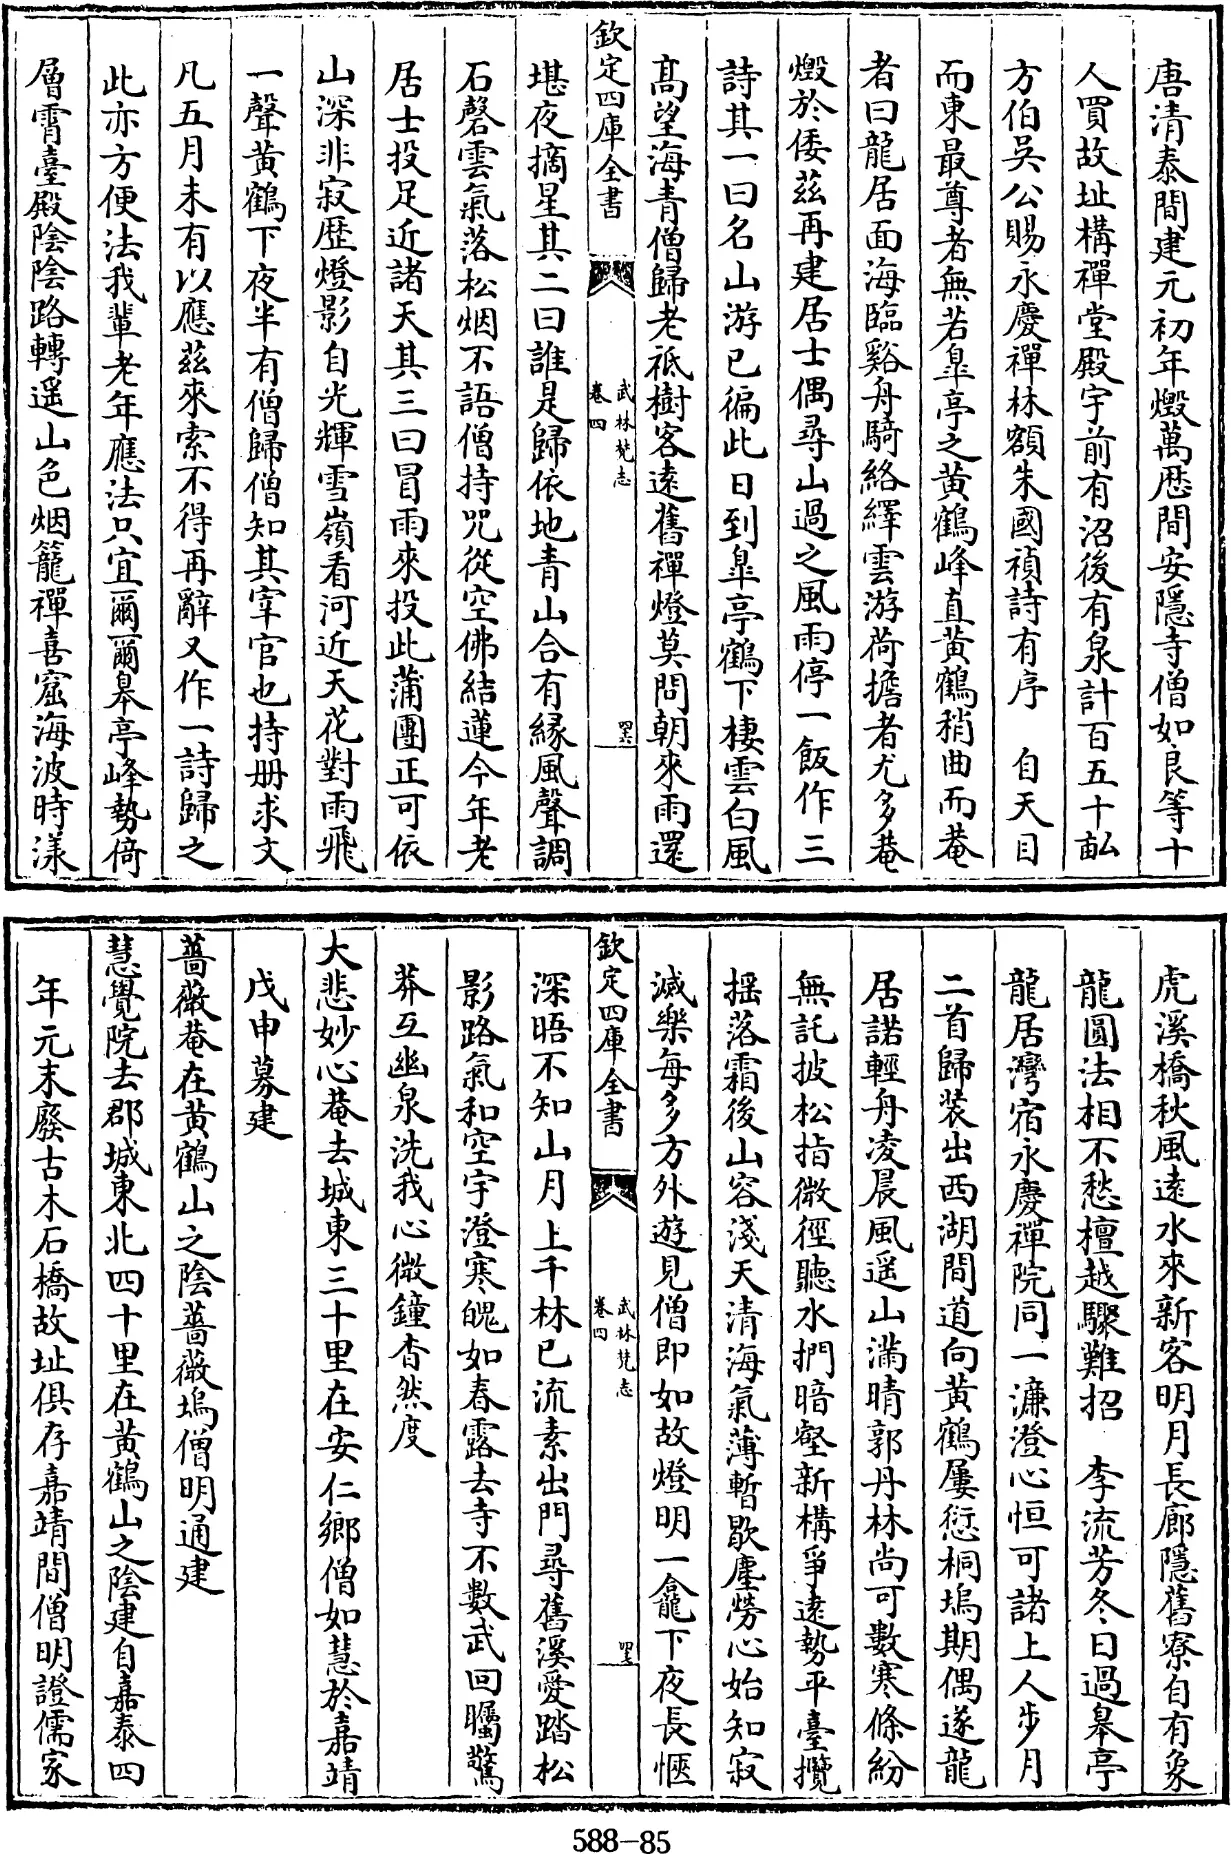 唐清泰間建元初年燬萬歷間安隱寺僧如良等十
人買故址構禪堂殿宇前有沼後有泉計百五十畝
方伯吳公賜永慶禪林額朱國禎詩有序　自天目
而東最尊者無若臯亭之黃鶴峰直黃鶴稍曲而菴
者曰龍居面海臨谿舟騎絡繹雲游荷擔者尤多菴
燬於倭茲再建居士偶尋山過之風雨停一飯作三
詩其一曰名山游已徧此日到臯亭鶴下棲雲白風
高望海青僧歸老祗樹客遠舊禪燈莫問朝來雨還
欽定四庫全書
武林梵志
卷四
堪夜摘星其二曰誰是歸依地青山合有緣風聲調
石磬雲氣落松烟不語僧持咒從空佛結蓮今年老
居士投足近諸天其三曰冒雨來投此蒲團正可依
山深非寂歷燈影自光輝雪嶺看河近天花對雨飛
一聲黃鶴下夜半有僧歸僧知其宰官也持册求文
凡五月未有以應茲來索不得再辭又作一詩歸之
此亦方便法我輩老年應法只宜爾爾皋亭峰勢倚
層霄臺殿陰陰路轉遥山色烟籠禪喜窟海波時漾
虎溪橋秋風遠水來新客明月長廊隱舊寮自有象
龍圓法相不愁檀越驟難招　李流芳冬日過皋亭
龍居灣宿永慶禪院同一濂澄心恒可諸上人步月
二首歸裝出西湖間道向黃鶴屢愆桐塢期偶遂龍
居諾輕舟凌晨風遥山滿晴郭丹林尚可數寒條紛
無託披松指微徑聽水捫暗壑新構爭遠勢平臺攬
揺落霜後山容淺天清海氣薄暫歇塵勞心始知寂
滅樂每多方外遊見僧即如故燈明一龕下夜長愜
欽定四庫全書
武林梵志
卷四
深晤不知山月上千林已流素出門尋舊溪愛踏松
影路氣和空宇澄寒魄如春露去寺不數武回矚驚
莽互幽泉洗我心微鐘杳然度
大悲妙心菴去城東三十里在安仁鄉僧如慧於嘉靖
戊申募建
薔薇菴在黃鶴山之陰薔薇塢僧明通建
慧覺院去郡城東北四十里在黃鶴山之陰建自嘉泰四
年元末廢古木石橋故址俱存嘉靖間僧明證儒家
588-85